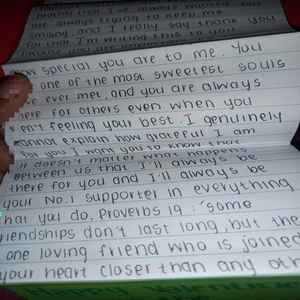 always trying to keep me
smiling, and I really thank you
for that. I'm writing this to you
special you are to me. You
one of the most sweetest souls
ve ever met, and you are always
here for others even when you
feeling your best. I genuinely
cannot explain how grateful I am
you I want you to know that
doesn't matter what happens
between us that I'll always be
there for you and I'll always be
your No.1 supporter in everything
that you do, Proverbs 19: "some
friendships don't last long, but the
one loving friend who is joined
your heart closer than any oth